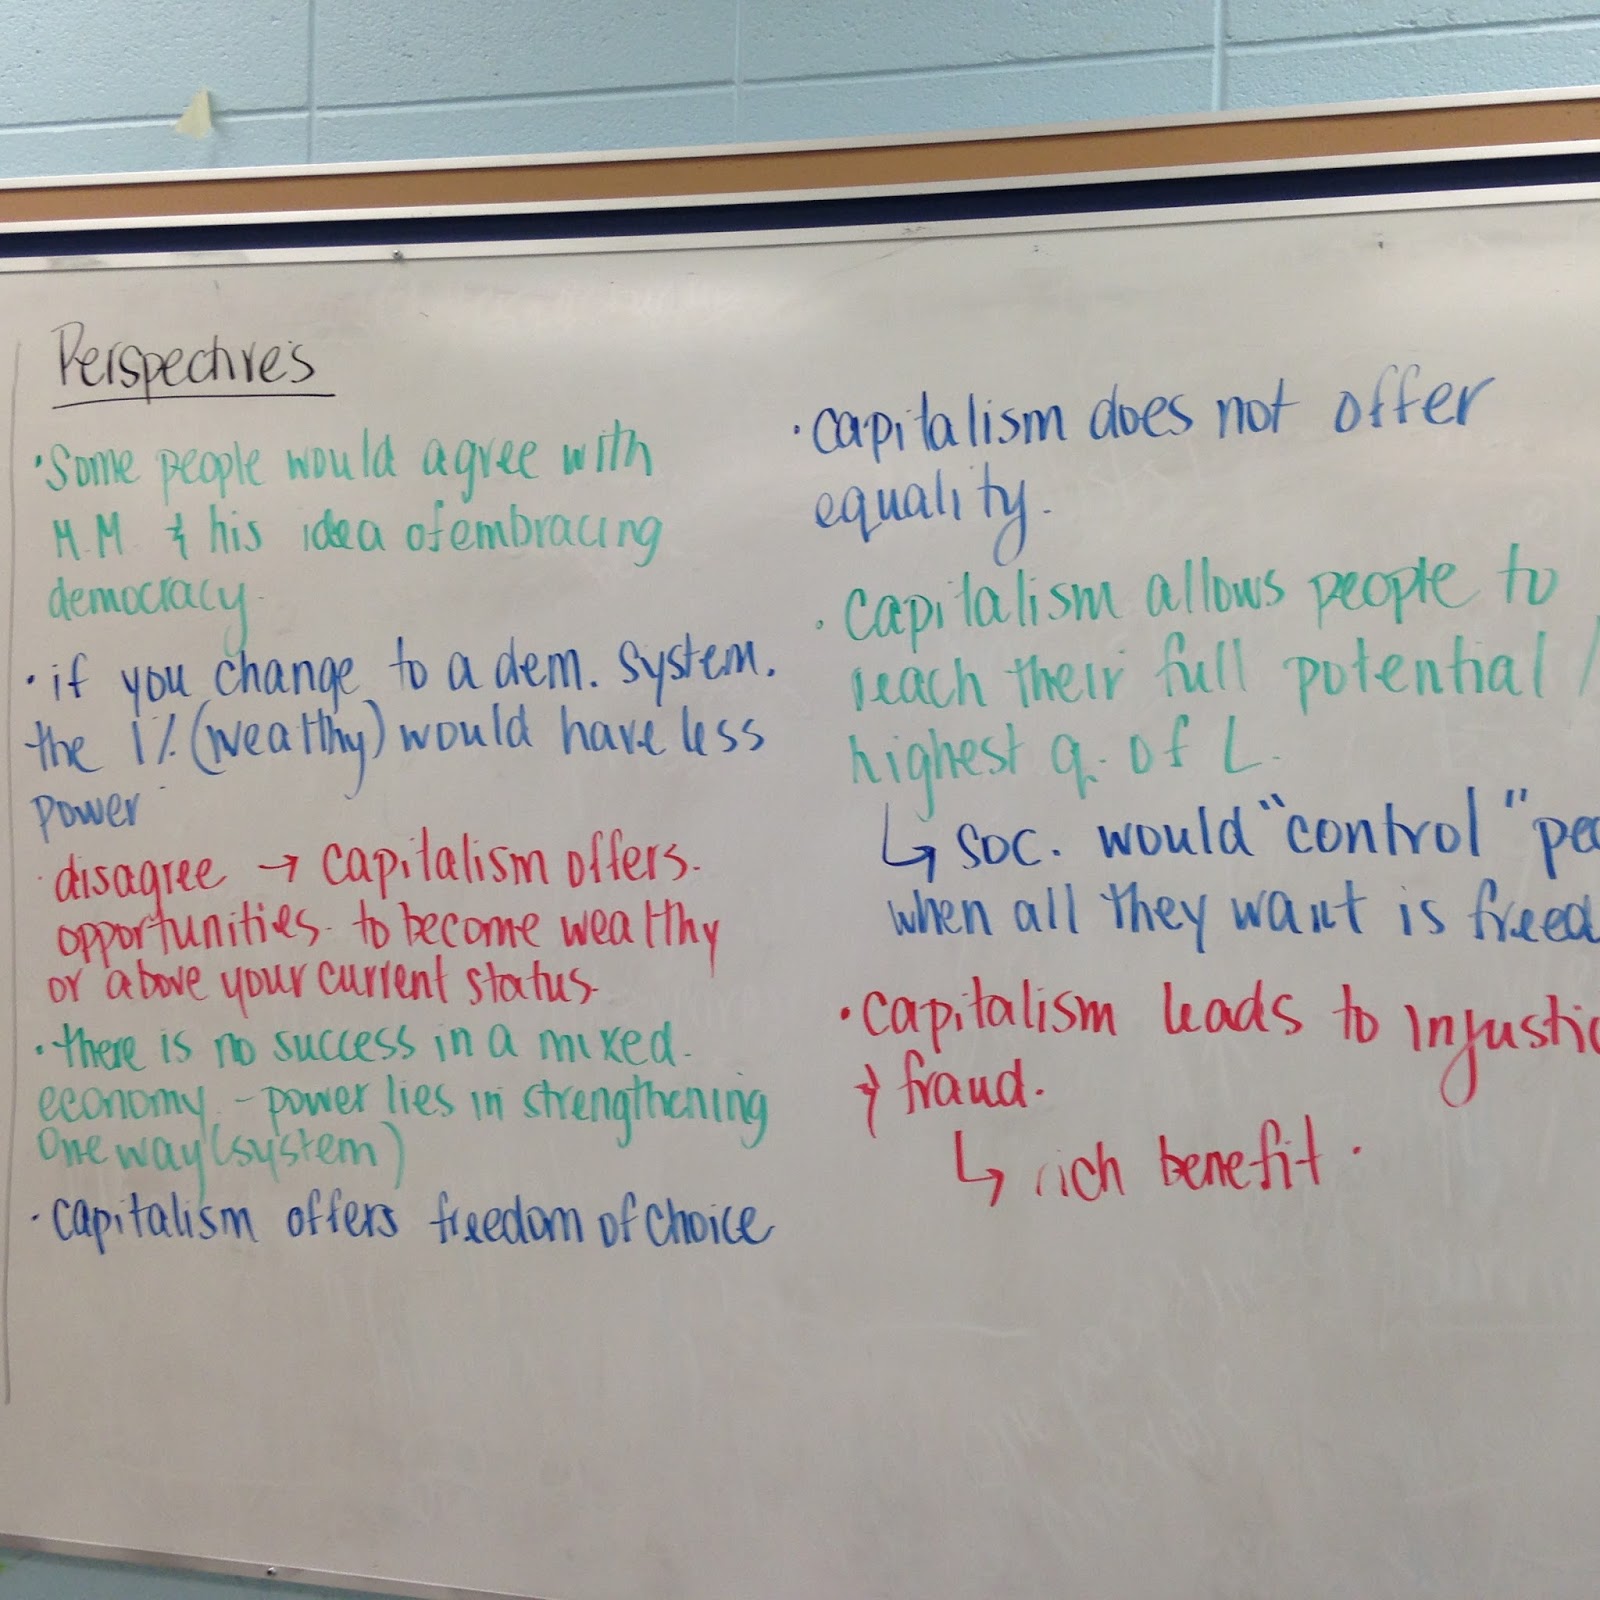 Perspectives
• Some people would agree with
M.M. & his idea of embracing
democracy.
• if you change to a dem. system.
the 1% (wealthy) would have less
power
• disagree → capitalism offers.
opportunities to become wealthy
or above your current status.
• there is no success in a mixed
economy. - power lies in strengthening
one way (system)
• capitalism offers freedom of choice
• capitalism does not offer
equality.
• capitalism allows people to
reach their full potential /
highest q. of L.
↳ soc. would "control" peo
when all they want is freed
• capitalism leads to injustic
& fraud.
↳ rich benefit.